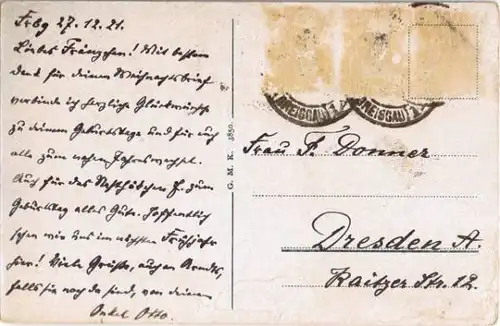 Frbg 27.12.21.
Liebes Fränzchen! Mit bestem
Dank für deinen Weihnachtsbrief
verbinde ich herzliche Glückwünsche
zu deinem Geburtstage und für euch
alle zum nahen Jahreswechsel.
Auch für das zum
Geburtstag alles Gute. Hoffentlich
sehen wir uns im nächsten Frühjahr
hier! Viele Grüße, auch an
falls sie noch da sind, von deinem
Onkel Otto.
G. M. K. 5850.
(BREISGAU) 1
(BREISGAU) 1
Frau F. Donner
Dresden A.
Raitzer Str. 12.